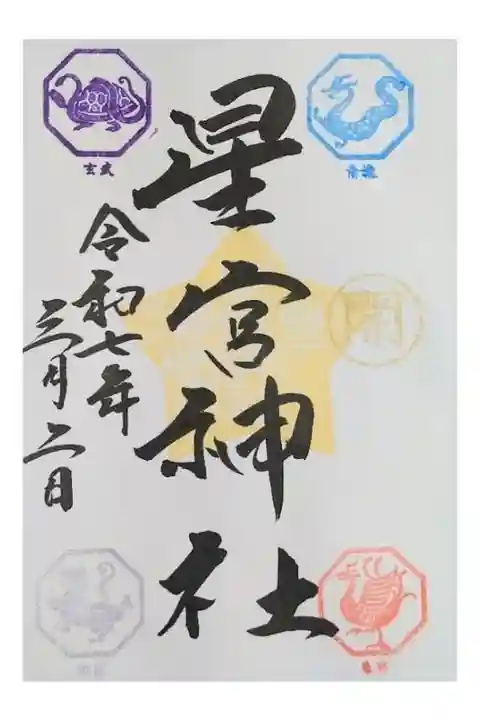 星宮神社
令和七年
三月二日
青龍
玄武
朱雀
開